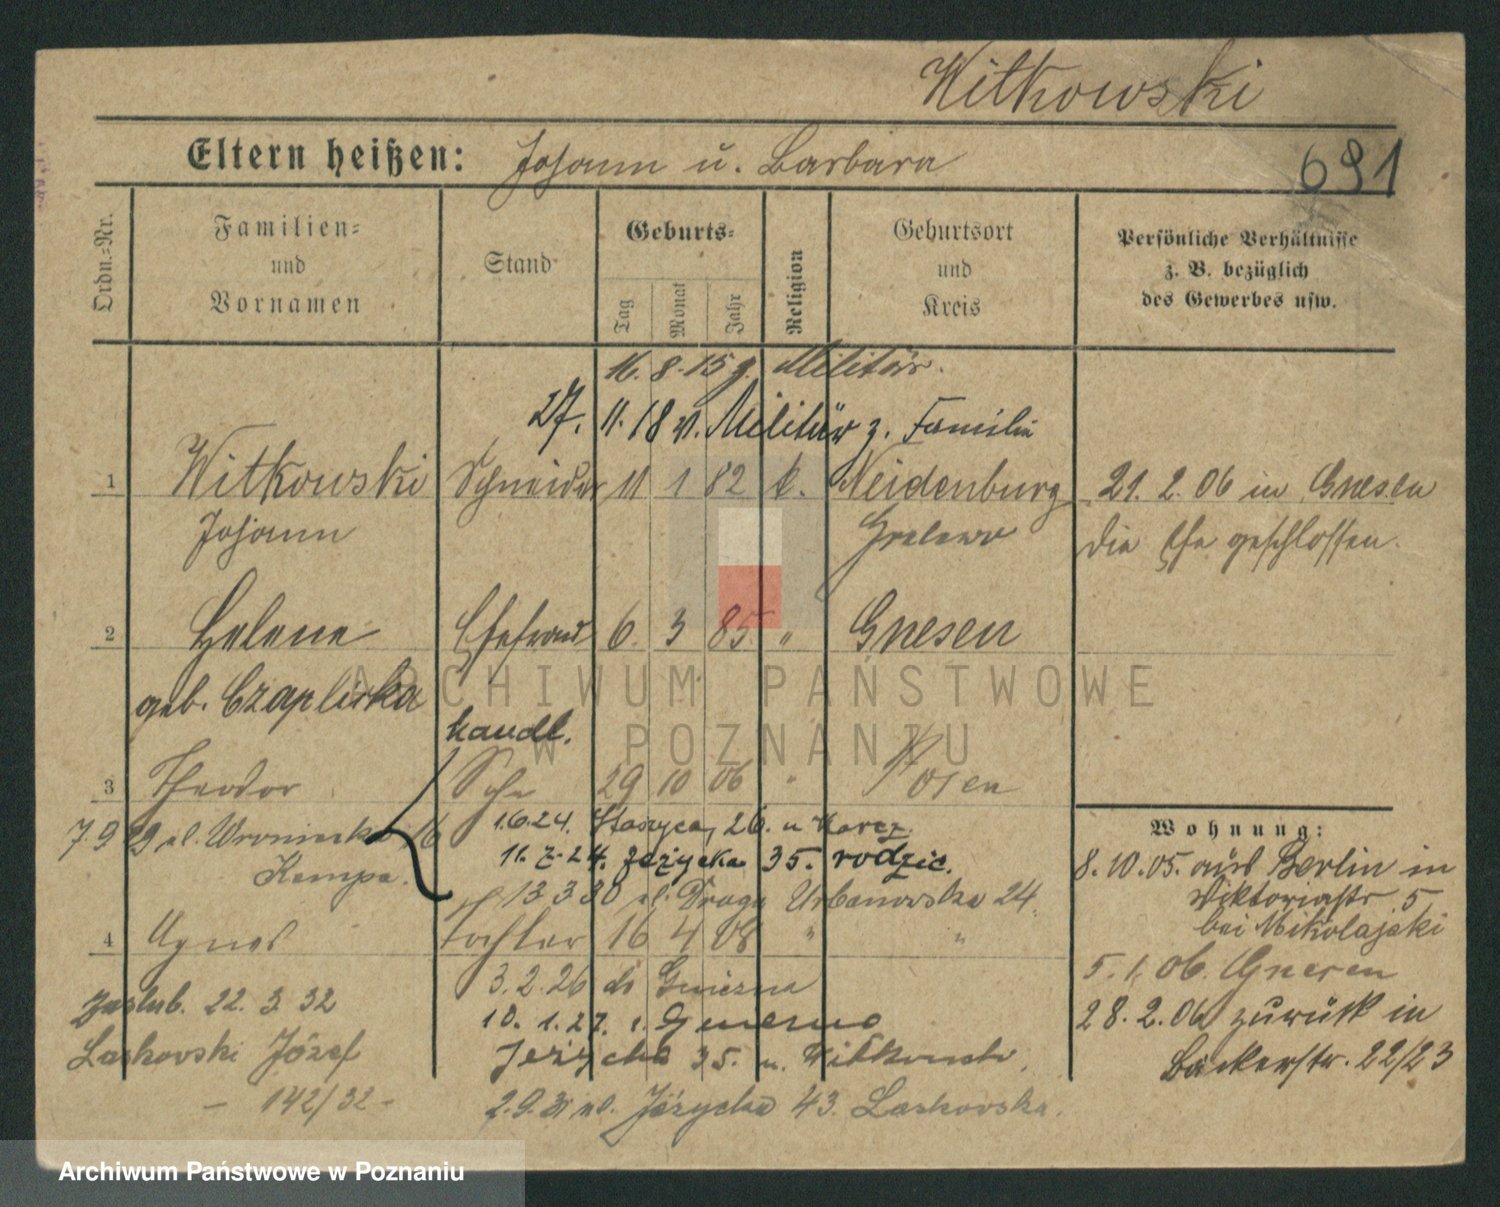 Witkowski
Eltern heißen: Johann u. Barbara
691
Ordn.-Nr.
Familien-
und
Vornamen
Stand
Geburts-
Tag
Monat
Jahr
Religion
Geburtsort
und
Kreis
Persönliche Verhältnisse
z. B. bezüglich
des Gewerbes usw.
16. 8. 15 z. Militär.
27. 11. 18 v. Militär z. Familie
1 Witkowski Schneider 11 1 82 k. Neidenburg 21. 2. 06 in Gnesen
Johann Grelewo die Ehe geschlossen.
2 Helene Ehefrau 6. 3 85 " Gnesen
geb. Czaplicka
handl.
3 Theodor Sohn 29 10 06 " Posen
7. 9 29 ul. Wroniecka 16
Kempa.
1.6.24. Staszyca 26. u
11. 7. 24. Jeżycka 35. rodzic.
13 3 30 ul. Droga Urbanowska 24.
4 Agnes Tochter 16 4 08 " "
3. 2. 26 do Gniezna
10. 1. 27. z Gniezno
Jeżycka 35. u. Witkowsk.
2. 9. 31 ul. Jeżycka 43. Laskovska.
Zaślub. 22. 3. 32
Laskovski Józef
- 142/32 -
Wohnung:
8. 10. 05. aus Berlin in
Viktoriastr 5
bei Mikolajski
5. 1. 06. Gnesen
28. 2. 06 zurück in
Bäckerstr. 22/23
ARCHIWUM PAŃSTWOWE
W POZNANIU
Archiwum Państwowe w Poznaniu